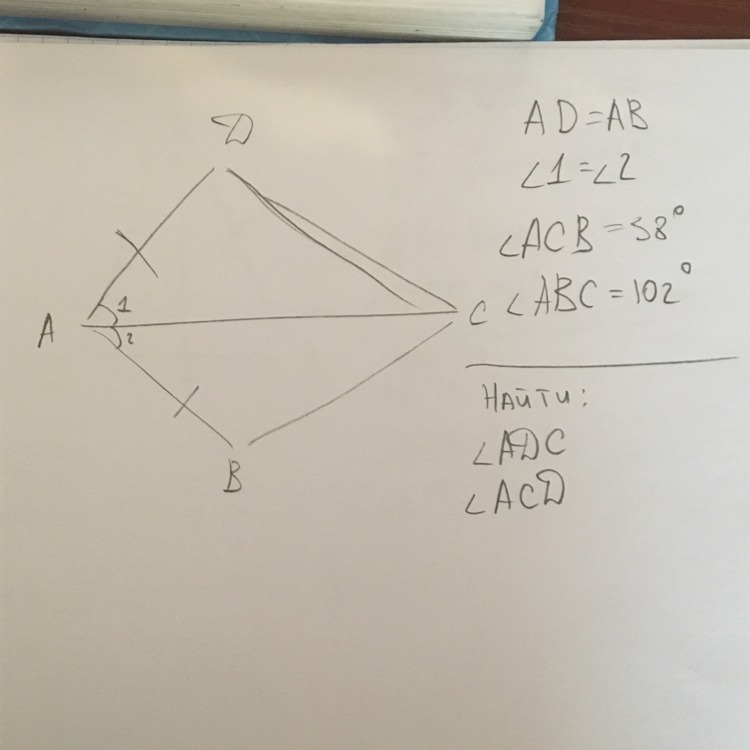 D
A
1
2
B
C
AD=AB
∠1=∠2
∠ACB=38°
∠ABC=102°
Найти:
∠ADC
∠ACD